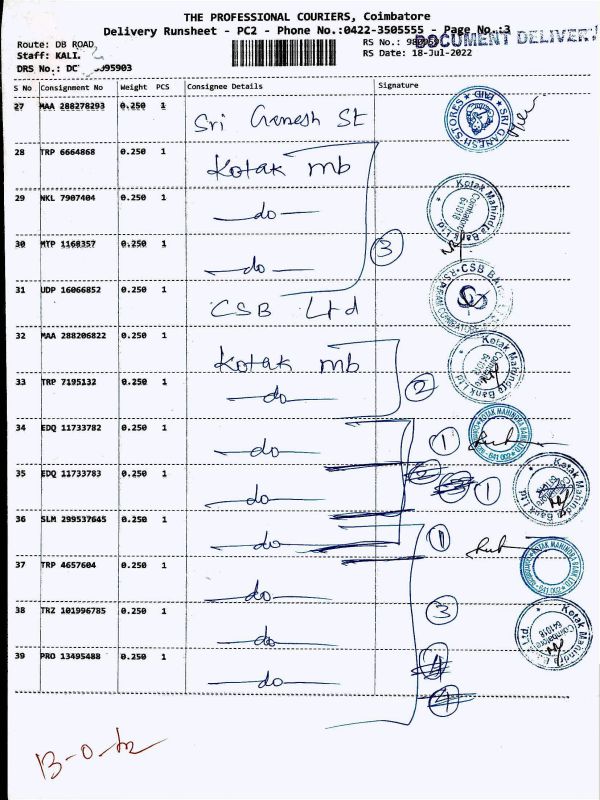 THE PROFESSIONAL COURIERS, Coimbatore
Delivery Runsheet - PC2 - Phone No.:0422-3505555 - Page No.:3
DOCUMENT DELIVER
Route: DB ROAD
Staff: KALI.
RS No.:
DRS No.:
RS Date: 18-Jul-2022
S No Consignment No Weight PCS Consignee Details Signature
27 MAA 288278293 0.250 1 Sri Ganesh St
SRI GANESH STORES
28 TRP 6664868 0.250 1 Kotak mb
29 NKL 7907404 0.250 1 do
Kotak Mahindra Bank Ltd
Coimbatore
641018
30 MTP 1168357 0.250 1 do
3
31 UDP 16066852 0.250 1 CSB Ltd
CSB BA
32 MAA 288206822 0.250 1 Kotak mb
Kotak Mahindra Bank Ltd
33 TRP 7195132 0.250 1 do
2
34 EDQ 11733782 0.250 1 do
1
KOTAK MAHINDRA BANK
35 EDQ 11733783 0.250 1 do
1
Kotak Mahindra Bank Ltd
36 SLM 299537645 0.250 1 do
1
KOTAK MAHINDRA BANK LTD
37 TRP 4657604 0.250 1 do
38 TRZ 101996785 0.250 1 do
3
Kotak Mahindra Ltd.
Coimbatore
641018
39 PRO 13495488 0.250 1 do
4